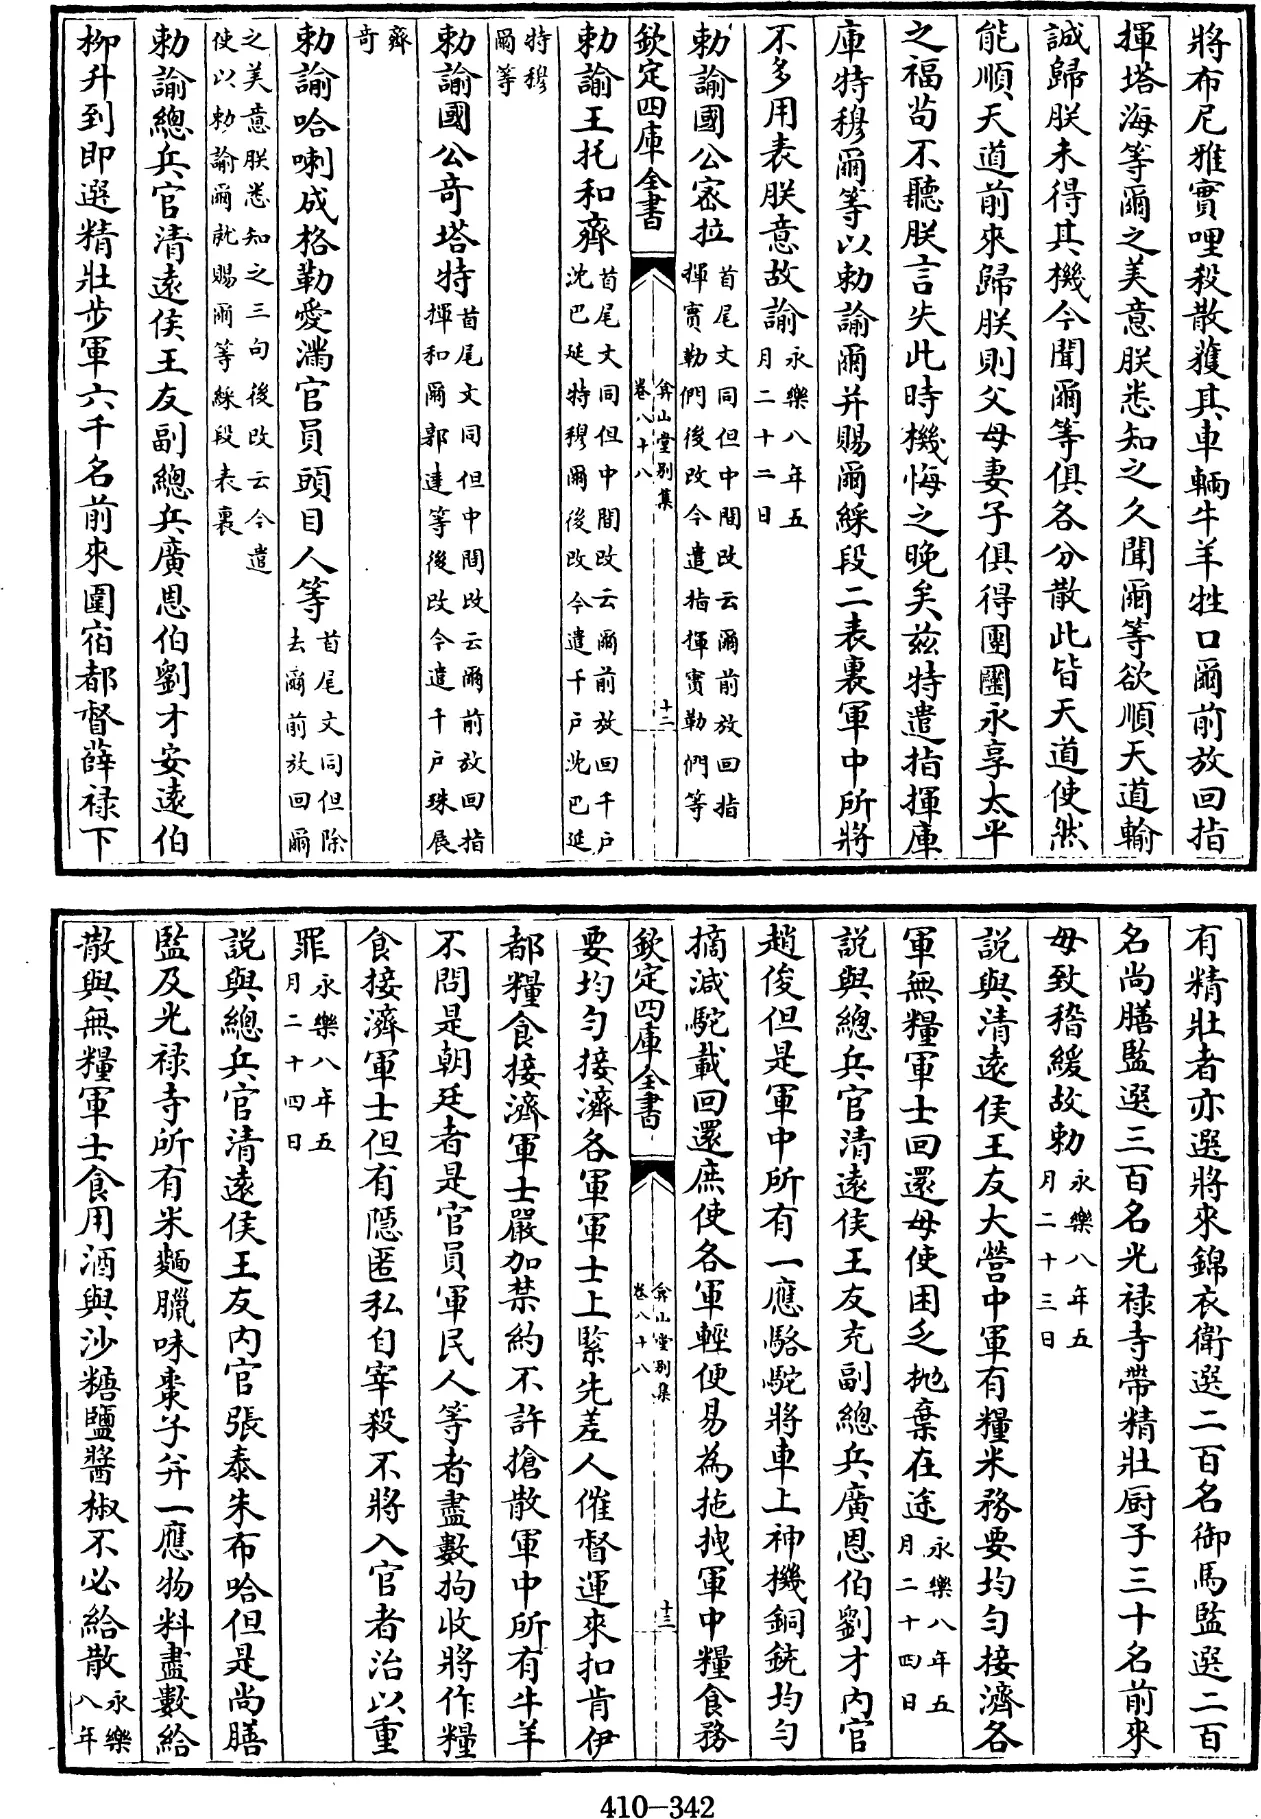 將布尼雅實哩殺散獲其車輛牛羊牲口爾前放回指
揮塔海等爾之美意朕悉知之久聞爾等欲順天道輸
誠歸朕未得其機今聞爾等俱各分散此皆天道使然
能順天道前來歸朕則父母妻子俱得團圞永享太平
之福茍不聽朕言失此時機悔之晚矣茲特遣指揮庫
庫特穆爾等以勅諭爾并賜爾綵段二表裏軍中所將
不多用表朕意故諭永樂八年五
月二十二日
勅諭國公宻拉首尾文同但中間改云爾前放回指
揮實勒們後改今遣指揮實勒們等
欽定四庫全書
弇山堂别集
卷八十八
十二
勅諭王托和齊首尾文同但中間改云爾前放回千戶
沈巴延特穆爾後改今遣千戶沈巴延
特穆
爾等
勅諭國公竒塔特首尾文同但中間改云爾前放回指
揮和爾郭達等後改今遣千戶珠展
齊
竒
勅諭哈喇成格勒愛滿官員頭目人等首尾文同但除
去爾前放回爾
之美意朕悉知之三句後改云今遣
使以勅諭爾就賜爾等綵段表裏
勅諭總兵官清遠侯王友副總兵廣恩伯劉才安遠伯
柳升到即選精壯步軍六千名前來圍宿都督薛祿下
有精壯者亦選將來錦衣衛選二百名御馬監選二百
名尚膳監選三百名光祿寺帶精壯厨子三十名前來
毋致稽緩故勅永樂八年五
月二十三日
說與清遠侯王友大營中軍有糧米務要均勻接濟各
軍無糧軍士回還毋使困乏抛棄在途永樂八年五
月二十四日
說與總兵官清遠侯王友充副總兵廣恩伯劉才內官
趙俊但是軍中所有一應駱駝將車上神機銅銃均勻
摘減駝載回還庶使各軍輕便易為拖拽軍中糧食務
欽定四庫全書
弇山堂别集
卷八十八
十三
要均勻接濟各軍軍士上緊先差人催督運來扣肯伊
都糧食接濟軍士嚴加禁約不許搶散軍中所有牛羊
不問是朝廷者是官員軍民人等者盡數拘收將作糧
食接濟軍士但有隱匿私自宰殺不將入官者治以重
罪永樂八年五
月二十四日
說與總兵官清遠侯王友內官張泰朱布哈但是尚膳
監及光祿寺所有米麵臘味棗子弁一應物料盡數給
散與無糧軍士食用酒與沙糖鹽醬椒不必給散永樂
八年
410-342